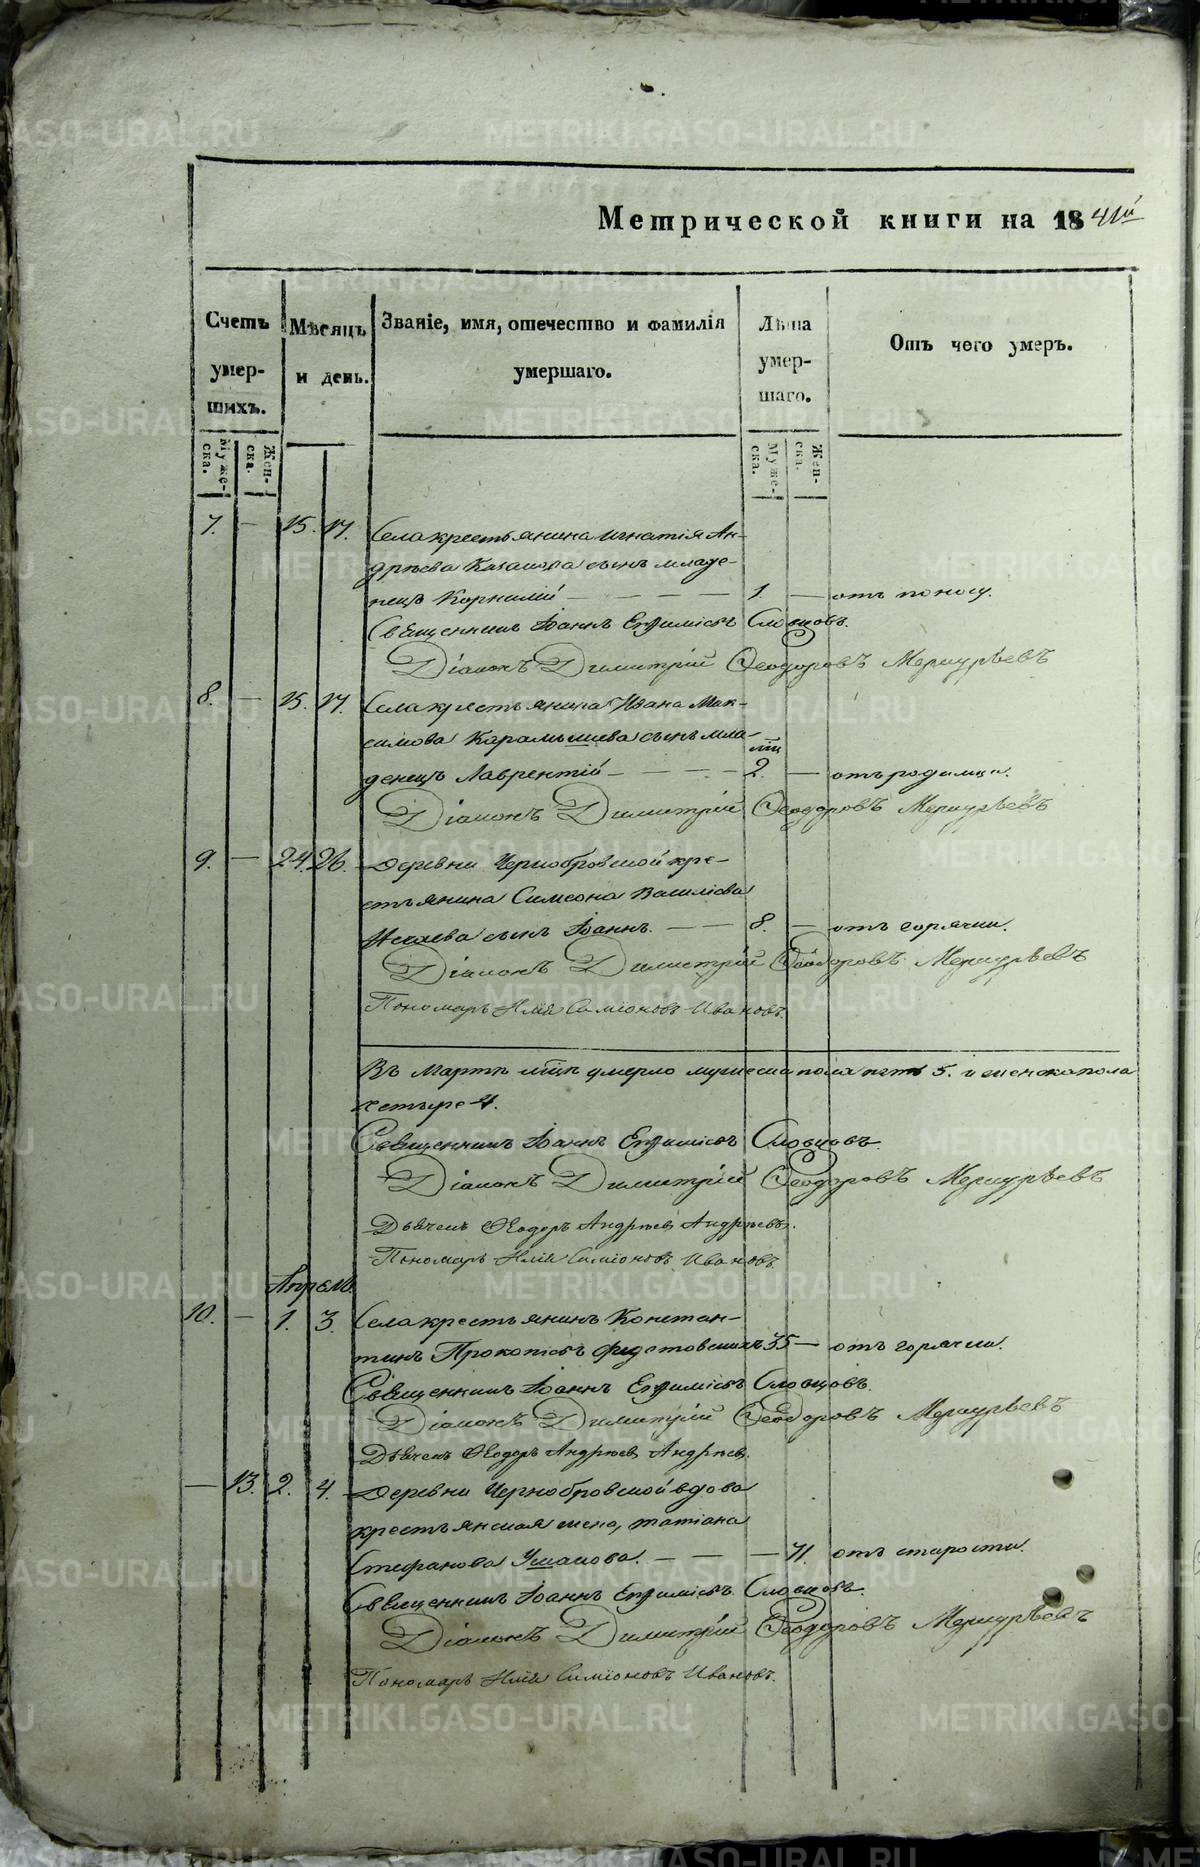 Метрической книги на 1841й
Счетъ умер- шихъ.
Мѣсяцъ и день.
Званіе, имя, отечество и фамилія
умершаго.
Лѣта умер- шаго.
Отъ чего умеръ.
Муже- ска.
Жен- ска.
Муже- ска.
Жен- ска.
7. — 15. 17. Села крестьянина Игнатія Ан-
дрѣева Казакова сынъ младе-
нецъ Корнилій — — — — 1. — отъ поносу.
Священникъ Іоаннъ Евѳиміевъ Словцовъ.
Діаконъ Димитрій Ѳеодоровъ Меркурьевъ
8. — 15. 17. Села крестьянина Ивана Мак-
симова Карамышева сынъ мла-
денецъ Лаврентій — — — — мц 2. — отъ родимца.
Діаконъ Димитрій Ѳеодоровъ Меркурьевъ
9. — 24. 26. Деревни Чернобровской кре-
стьянина Симеона Василіева
Исаева сынъ Іоаннъ. — — 8. — отъ горячки.
Діаконъ Димитрій Ѳеодоровъ Меркурьевъ
Пономарь Илія Симіоновъ Ивановъ.
Въ Мартѣ мцѣ умерло мужеска пола пять 5. и женска пола
четыре 4.
Священникъ Іоаннъ Евѳиміевъ Словцовъ.
Діаконъ Димитрій Ѳеодоровъ Меркурьевъ
Дьячекъ Ѳеодоръ Андреевъ Андреевъ.
Пономарь Илія Симіоновъ Ивановъ.
Апрель
10. — 1. 3. Села крестьянинъ Констан-
тинъ Прокопіевъ 35 — отъ горячки.
Священникъ Іоаннъ Евѳиміевъ Словцовъ.
Діаконъ Димитрій Ѳеодоровъ Меркурьевъ
Дьячекъ Ѳеодоръ Андреевъ Андреевъ.
— 13. 2. 4. Деревни Чернобровской вдова
крестьянская жена, Татіана
Стефанова Ушакова. — — — 71. отъ старости.
Священникъ Іоаннъ Евѳиміевъ Словцовъ.
Діаконъ Димитрій Ѳеодоровъ Меркурьевъ
Пономарь Илія Симіоновъ Ивановъ.
METRIKI.GASO-URAL.RU